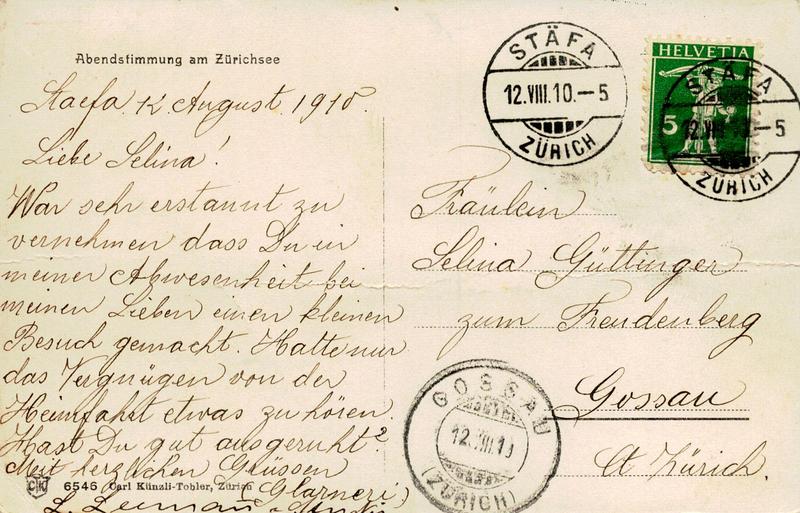 Abendstimmung am Zürichsee
Staefa 12 August 1910.
Liebe Selina!
War sehr erstaunt zu
vernehmen dass Du in
meiner Abwesenheit bei
meinen Lieben einen kleinen
Besuch gemacht. Hatte nur
das Vergnügen von der
Heimfahrt etwas zu hören.
Hast Du gut ausgeruht?
Mit herzlichen Grüssen
6546 Carl Künzli-Tobler, Zürich
(Glarneri)
L.
STÄFA
12.VIII.10.–5
ZÜRICH
HELVETIA
5
STÄFA
12.VIII.10.–5
ZÜRICH
Fräulein
Selina Güttinger
zum Freudenberg
Gossau
Ct Zürich.
GOSSAU
12.VIII.10
(ZÜRICH)